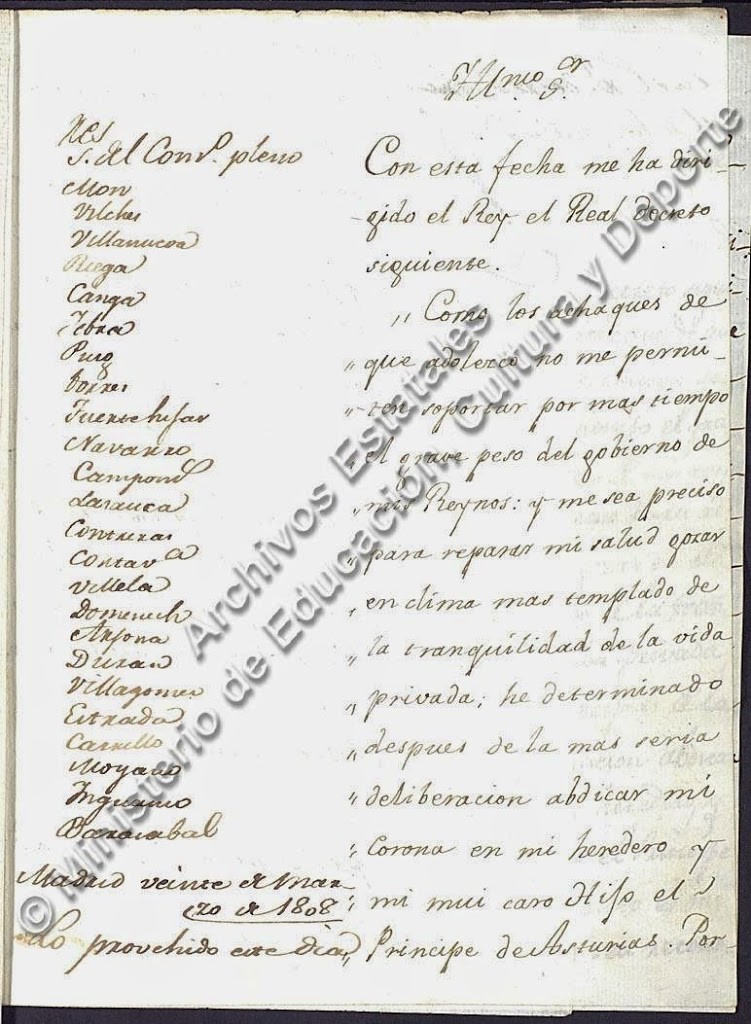 Yllmo. Sr.
res
S. del Cons.o pleno
Mon
Vilches
Villanueva
Riega
Canga
Torres
Fuertehijar
Navarro
Campom.s
Lasauca
Contreras
Villela
Domenech
Arjona
Duran
Villagomez
Estrada
Carrillo
Moyano
Inguanzo
Madrid veinte de Mar-
zo de 1808
Lo provehido este dia
Con esta fecha me ha diri-
gido el Rey el Real decreto
siguiente.
„ Como los achaques de
„ que adolezco no me permi-
„ ten soportar por mas tiempo
„ el grave peso del gobierno de
„ mis Reynos: y me sea preciso
„ para reparar mi salud gozar
„ en clima mas templado de
„ la tranquilidad de la vida
„ privada; he determinado
„ despues de la mas seria
„ deliberacion abdicar mi
„ Corona en mi heredero y
„ mi mui caro Hijo el
„ Principe de Asturias. Por-
© Ministerio de Educación, Cultura y Deporte
Archivos Estatales